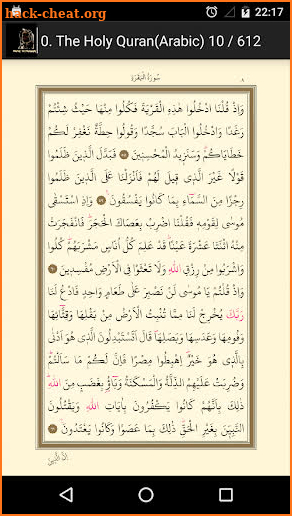 hack-cheat.org
22:17
0. The Holy Quran(Arabic) 10 / 612
سُورَةُ الْبَقَرَةِ ٨
وَاِذْ قُلْنَا ادْخُلُوا هٰذِهِ الْقَرْيَةَ فَكُلُوا مِنْهَا حَيْثُ شِئْتُمْ
رَغَدًا وَادْخُلُوا الْبَابَ سُجَّدًا وَقُولُوا حِطَّةٌ نَغْفِرْ لَكُمْ
خَطَايَاكُمْ وَسَنَزِيدُ الْمُحْسِنِينَ ٥٨ فَبَدَّلَ الَّذِينَ ظَلَمُوا
قَوْلًا غَيْرَ الَّذِي قِيلَ لَهُمْ فَاَنْزَلْنَا عَلَى الَّذِينَ ظَلَمُوا
رِجْزًا مِنَ السَّمَٓاءِ بِمَا كَانُوا يَفْسُقُونَ ٥٩ وَاِذِ اسْتَسْقٰى
مُوسٰى لِقَوْمِهِ فَقُلْنَا اضْرِبْ بِعَصَاكَ الْحَجَرَ فَانْفَجَرَتْ
مِنْهُ اثْنَتَا عَشْرَةَ عَيْنًا قَدْ عَلِمَ كُلُّ اُنَاسٍ مَشْرَبَهُمْ كُلُوا
وَاشْرَبُوا مِنْ رِزْقِ اللهِ وَلَا تَعْثَوْا فِي الْاَرْضِ مُفْسِدِينَ ٦٠
وَاِذْ قُلْتُمْ يَا مُوسٰى لَنْ نَصْبِرَ عَلٰى طَعَامٍ وَاحِدٍ فَادْعُ لَنَا
رَبَّكَ يُخْرِجْ لَنَا مِمَّا تُنْبِتُ الْاَرْضُ مِنْ بَقْلِهَا وَقِثَّٓائِهَا
وَفُومِهَا وَعَدَسِهَا وَبَصَلِهَا قَالَ اَتَسْتَبْدِلُونَ الَّذِي هُوَ اَدْنٰى
بِالَّذِي هُوَ خَيْرٌ اِهْبِطُوا مِصْرًا فَاِنَّ لَكُمْ مَا سَاَلْتُمْ
وَضُرِبَتْ عَلَيْهِمُ الذِّلَّةُ وَالْمَسْكَنَةُ وَبَٓاؤُ بِغَضَبٍ مِنَ اللهِ
ذٰلِكَ بِاَنَّهُمْ كَانُوا يَكْفُرُونَ بِاٰيَاتِ اللهِ وَيَقْتُلُونَ
النَّبِيّٖنَ بِغَيْرِ الْحَقِّ ذٰلِكَ بِمَا عَصَوْا وَكَانُوا يَعْتَدُونَ ٦١
hack-cheat.org